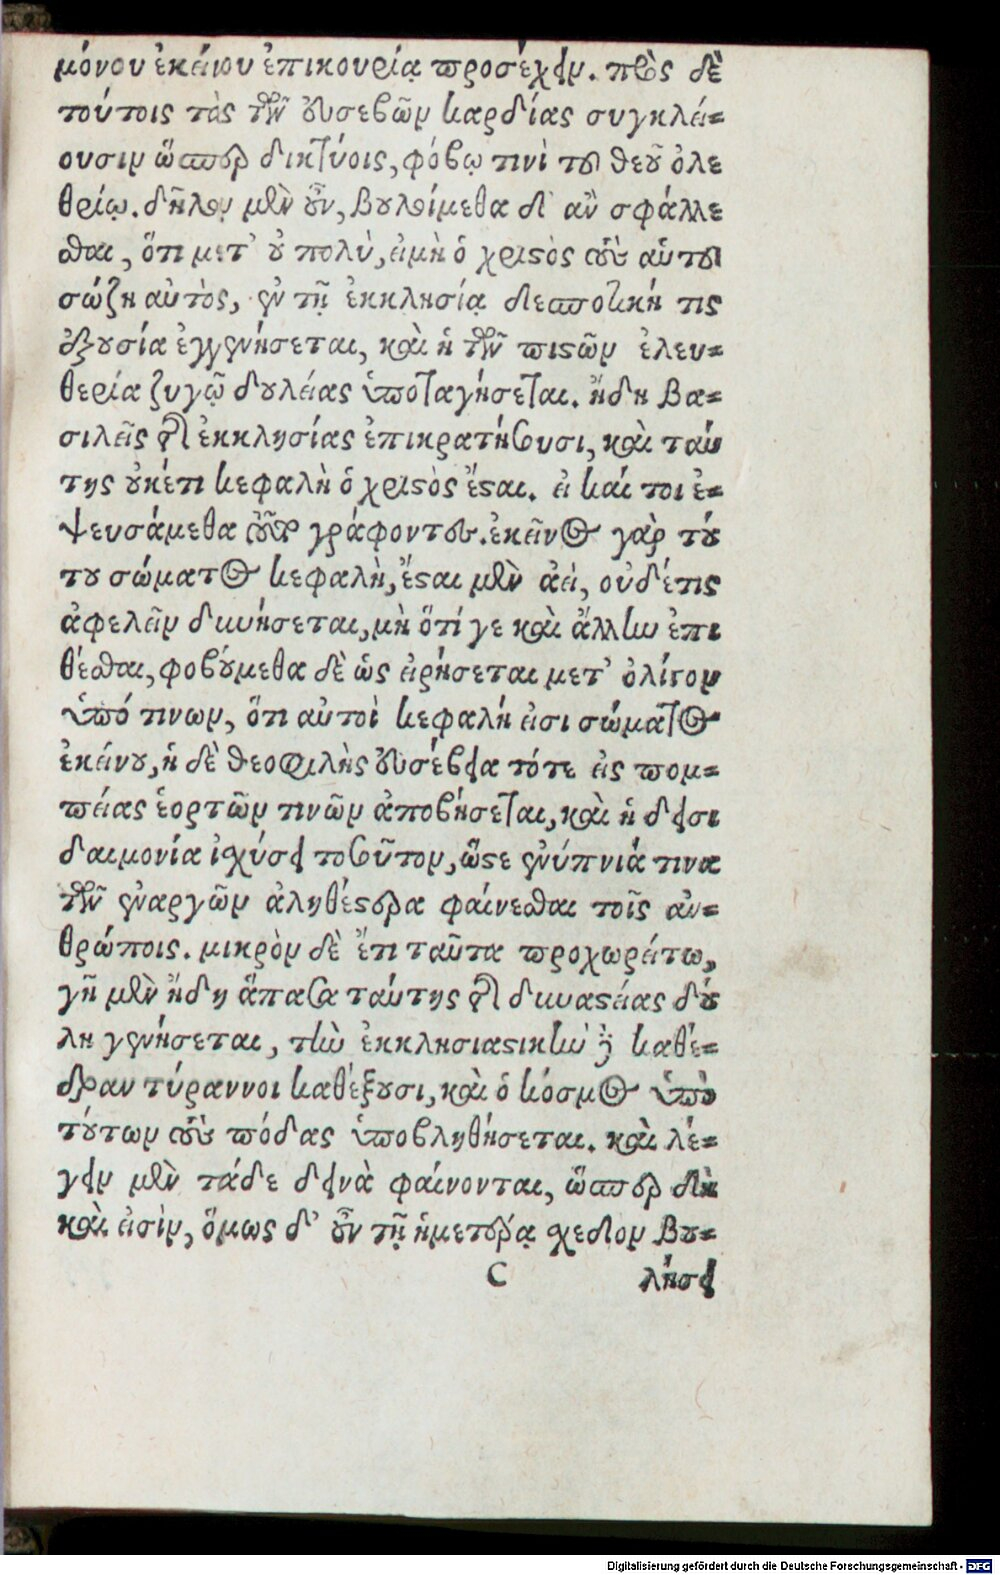 μόνου ἐκείνου ἐπικουρίᾳ προσέχειν. πρὸς δὲ
τούτοις τὰς τῶν εὐσεβῶν καρδίας συγκλεί=
ουσιν ὥσπερ δικτύοις, φόβῳ τινὶ τοῦ θεοῦ ὀλε
θρίῳ. δῆλον μὲν οὖν, βουλοίμεθα δ' ἂν σφάλλε
σθαι, ὅτι μετ' οὐ πολὺ, εἰμὴ ὁ χριστὸς τοὺς αὑτοῦ
σώζῃ αὐτὸς, ἐν τῇ ἐκκλησίᾳ δεσποτική τις
ἐξουσία ἐγγενήσεται, καὶ ἡ τῶν πιστῶν ἐλευ=
θερία ζυγῷ δουλείας ὑποταγήσεται. ἤδη βα=
σιλεῖς τῆς ἐκκλησίας ἐπικρατήσουσι, καὶ ταύ
της οὐκέτι κεφαλὴ ὁ χριστὸς ἔσται. εἰ καί τοι ἐ=
ψευσάμεθα τοῦτο γράφοντες. ἐκεῖνος γὰρ τού
του σώματος κεφαλὴ, ἔσται μὲν ἀεί, οὐδέτις
ἀφελεῖν δυνήσεται, μὴ ὅτι γε καὶ ἄλλην ἐπι
θέσθαι, φοβούμεθα δὲ ὡς εἰρήσεται μετ' ὀλίγον
ὑπό τινων, ὅτι αὐτοὶ κεφαλή εἰσι σώματος
ἐκείνου, ἡ δὲ θεοφιλὴς εὐσέβεια τότε εἰς πομ=
πείας ἑορτῶν τινῶν ἀποβήσεται, καὶ ἡ δεισι
δαιμονία ἰσχύσει τοσοῦτον, ὥστε ἐνύπνιά τινα
τῶν ἐναργῶν ἀληθέστερα φαίνεσθαι τοῖς ἀν=
θρώποις. μικρὸν δὲ ἔτι ταῦτα προχωρείτω,
γῆ μὲν ἤδη ἅπασα ταύτης τῆς δυναστείας δού
λη γενήσεται, τὴν ἐκκλησιαστικήν τε καθέ=
δραν τύραννοι καθέξουσι, καὶ ὁ κόσμος ὑπὸ
τούτων τοὺς πόδας ὑποβληθήσεται. καὶ λέ=
γειν μὲν τάδε δεινὰ φαίνονται, ὥσπερ δὴ
καὶ εἰσὶν, ὅμως δ' οὖν τῇ ἡμετέρᾳ σχεδὸν βου=
C λήσει
Digitalisierung gefördert durch die Deutsche Forschungsgemeinschaft - DFG